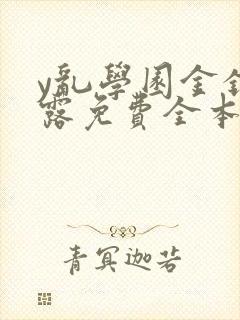 y亂學園金鑰
露免費全本
青冥迦若